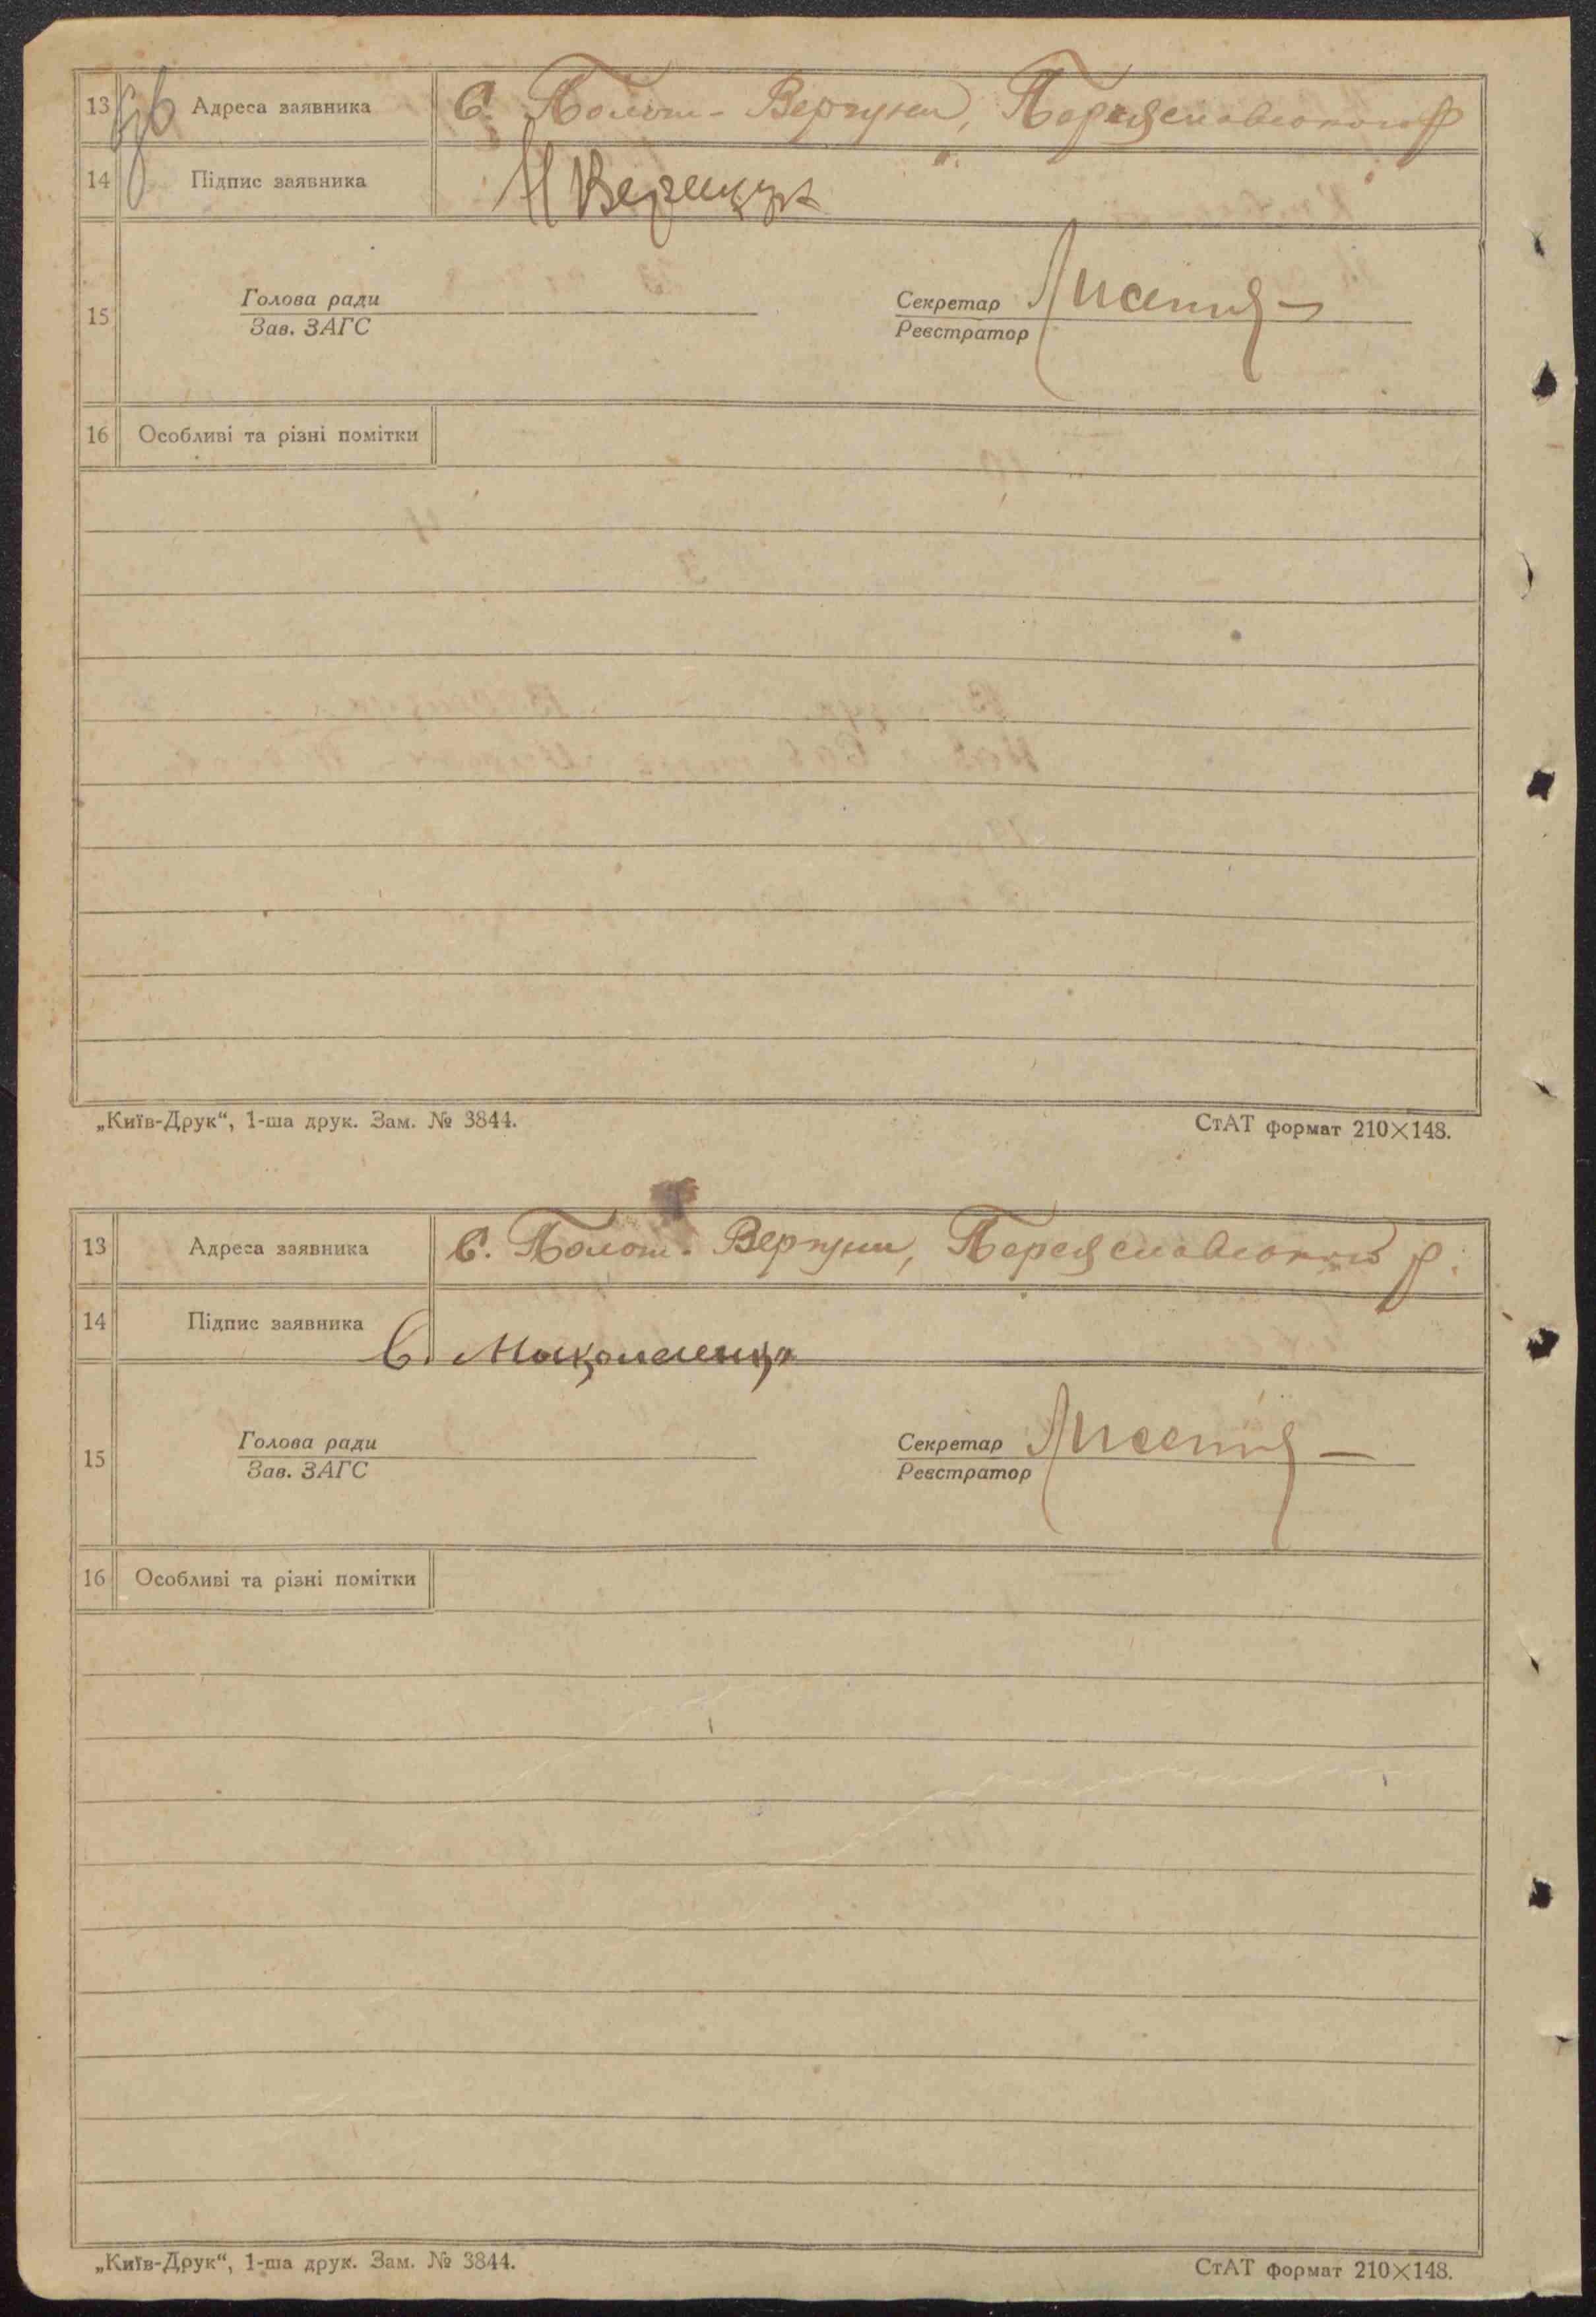 13 Адреса заявника С. Полом.- Вергуни, Переяславського р
14 Підпис заявника
Голова ради Секретар
15
Зав. ЗАГС Реєстратор
16 Особливі та різні помітки
„Київ-Друк“, 1-ша друк. Зам. № 3844. СтАТ формат 210×148.
13 Адреса заявника С. Полом.- Вергуни, Переяславського р.
14 Підпис заявника Є. Миколаенко
Голова ради Секретар
15
Зав. ЗАГС Реєстратор
16 Особливі та різні помітки
„Київ-Друк“, 1-ша друк. Зам. № 3844. СтАТ формат 210×148.